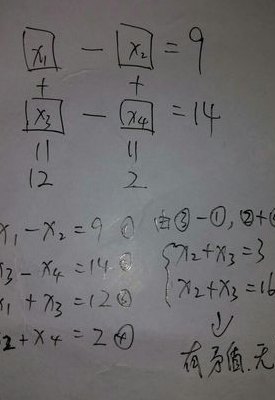 x₁ − x₂ = 9
+ +
x₃ − x₄ = 14
|| ||
12 2
x₁ − x₂ = 9 ①
x₃ − x₄ = 14 ②
x₁ + x₃ = 12 ③
x₂ + x₄ = 2 ④
由③−①, ②+④
x₂ + x₃ = 3
x₂ + x₃ = 16
↓
有矛盾.无